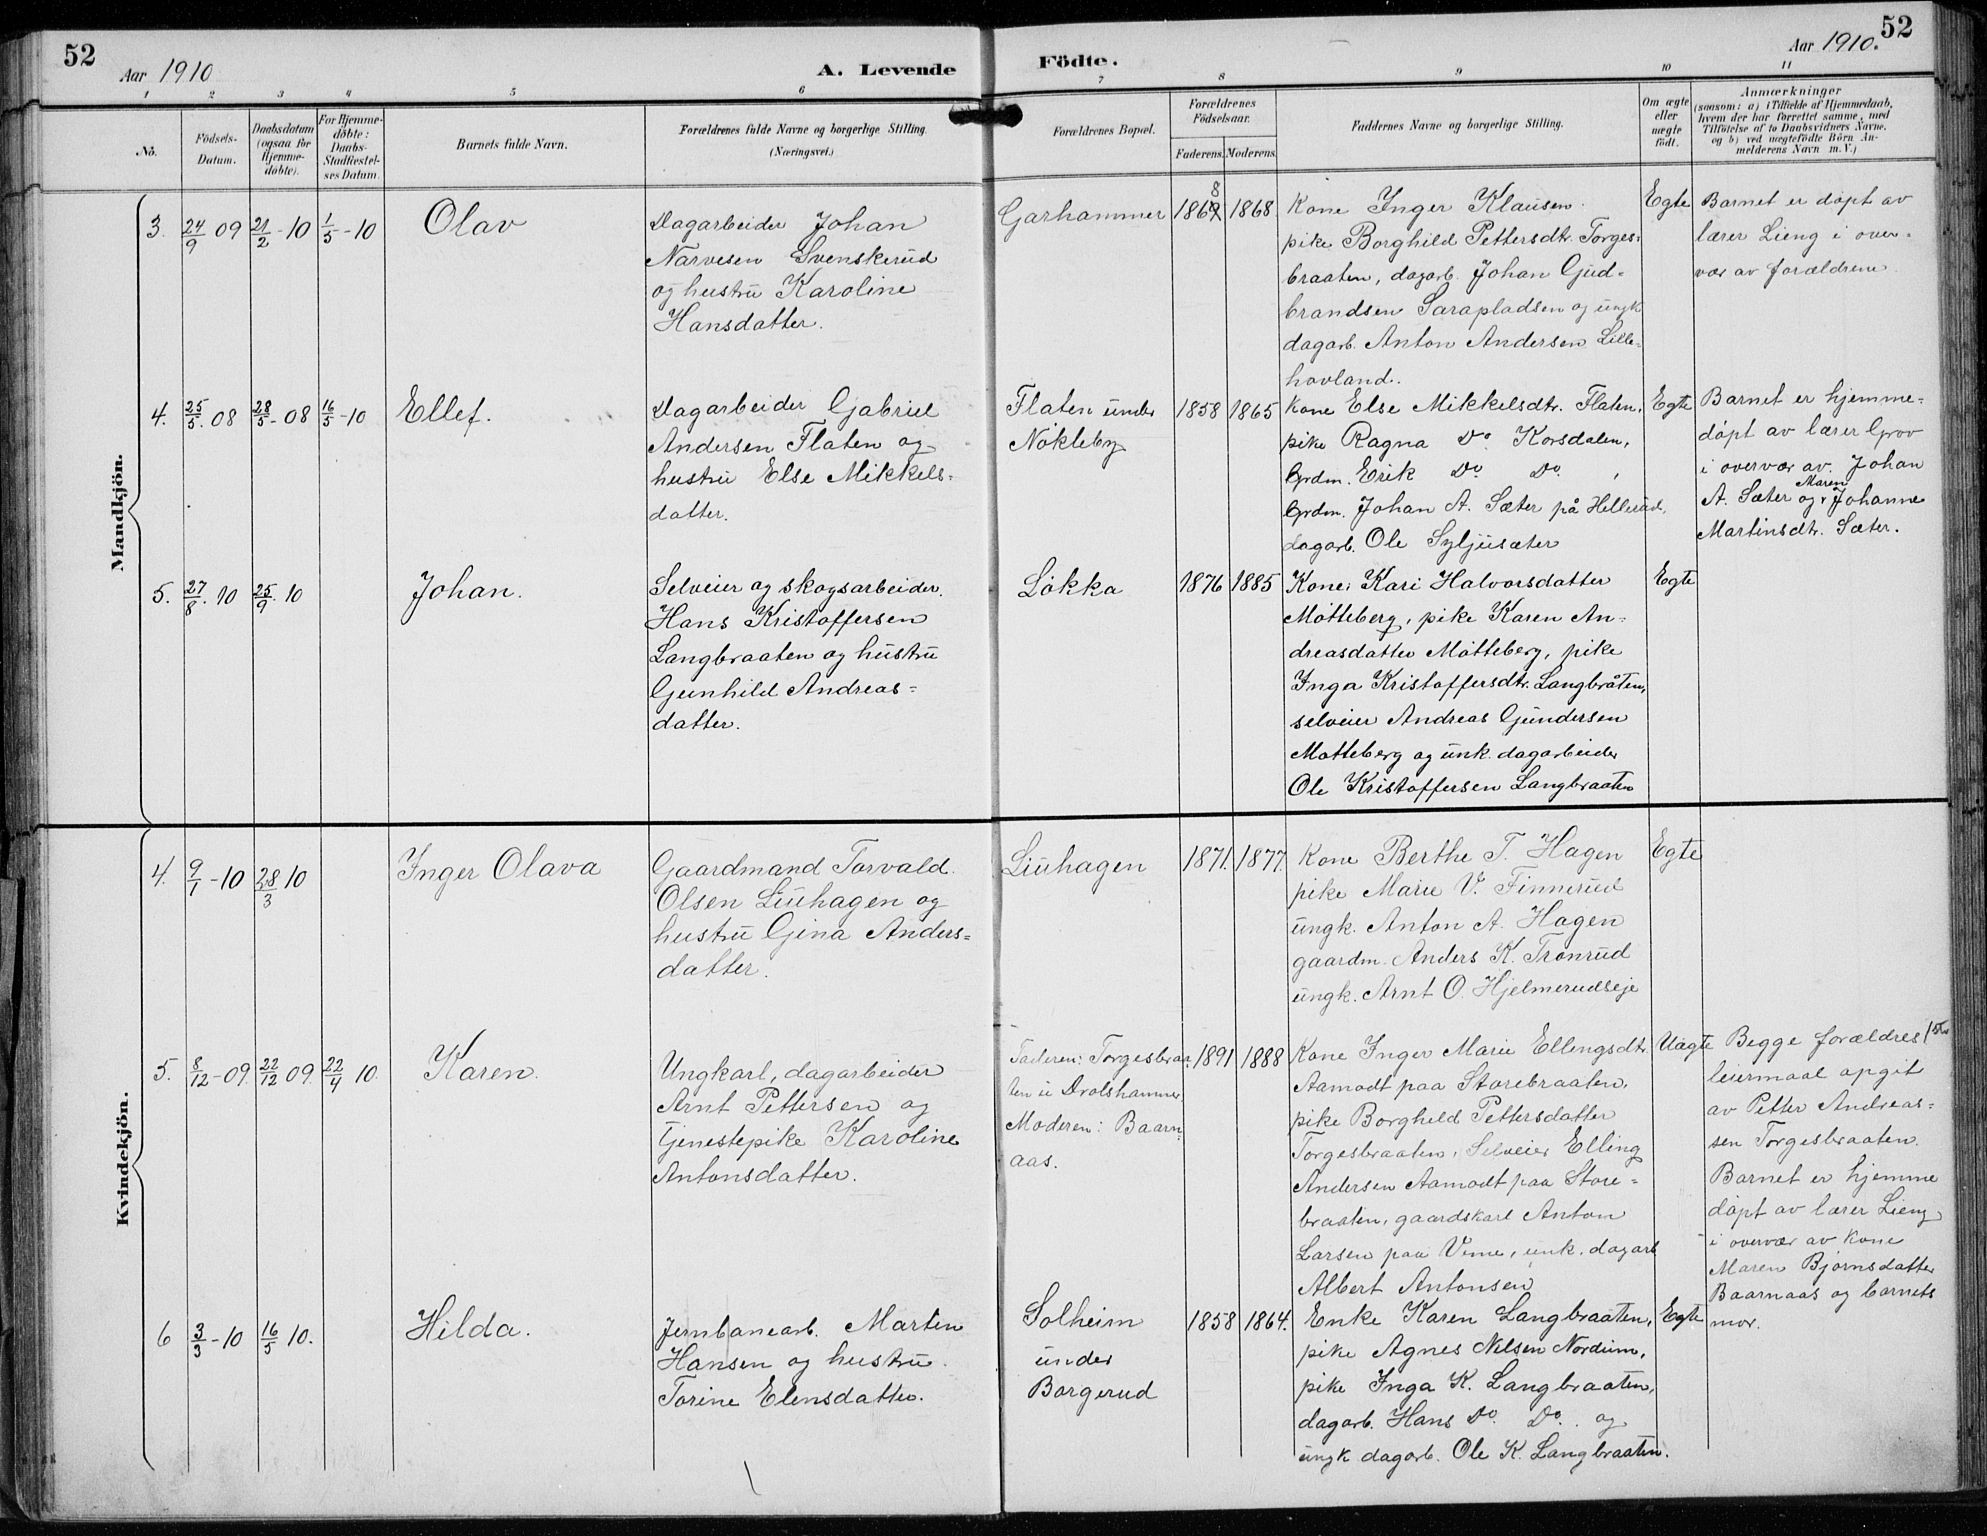 52
Aar 1910
A. Levende
Födte.
Aar 1910.
52
1 2 3 4 5 6 7 8 9 10 11
No.
Födsels-
Datum.
Daabsdatum
(ogsaa for
Hjemme-
döbte).
For Hjemme-
döbte:
Daabs-
Stadfæstel-
ses Datum.
Barnets fulde Navn.
Forældrenes fulde Navne og borgerlige Stilling.
(Næringsvei.)
Forældrenes Bopæl.
Forældrenes
Födselsaar.
Faderens. Moderens.
Faddernes Navne og borgerlige Stilling.
Om ægte
eller
uægte
födt.
Anmærkninger
(saasom: a) i Tilfælde af Hjemmedaab,
hvem der har forrettet samme, med
Tilföielse af to Daabsvidners Navne,
og b) ved uægtefödte Börn An-
melderens Navn m. V.)
Mandkjön.
3. 24/9 09 21/2 - 10 1/5 - 10 Olav
Dagarbeider Johan
Narvesen Svenskerud
og hustru Karoline
Hansdatter.
Garhammer
8
1867 1868
Kone Inger Klausen
pike Borghild Pettersdtr. Torges-
braaten, dagarb. Johan Gud-
brandsen Sarapladsen og ungk
dagarb. Anton Andersen Lille-
hovland.
Egte
Barnet er døpt av
lærer Lieng i over-
vær av forældrene.
4. 25/5. 08 28/5 - 08 16/5 - 10 Ellef.
Dagarbeider Gabriel
Andersen Flaten og
hustru Else Mikkels-
datter.
Flaten under
Nøkleby
1858 1865
Kone Else Mikkelsdtr. Flaten,
pike Ragna Do Korsdalen,
Grdm. Erik Do Do,
Grdm. Johan A. Sæter på Hellerud,
dagarb. Ole Syljusæter
Egte
Barnet er hjemme-
døpt av lærer Grov
i overvær av. Johan
Maren
A. Sæter og Johanne
Martinsdtr. Sæter.
5. 27/8. 10 25/9. 10 Johan.
Selveier og skogsarbeider.
Hans Kristoffersen
Langbraaten og hustru
Gunhild Andreas-
datter.
Løkka
1876 1885
Kone Kari Halvorsdatter
Møtteberg, pike Karen An-
dreasdatter Møtteberg, pike
Inga Kristoffersdtr. Langbråten,
selveier Andreas Gundersen
Møtteberg og unk. dagarbeider
Ole Kristoffersen Langbraaten
Egte
Kvindekjön.
4. 9/1 - 10 28/3 10 Inger Olava
Gaardmand Torvald
Olsen Liuhagen og
hustru Gina Anders-
datter.
Liuhagen
1871. 1877.
Kone Berthe T. Hagen
pike Marie V. Finnerud
ungk. Anton A. Hagen
gaardm. Anders K. Tronrud
ungk. Arnt O. Hjelmerudseje
Egte
5. 8/12 - 09. 22/12 09. 22/4 10. Karen.
Ungkarl, dagarbeider
Arnt Pettersen og
tjenestepike Karoline
Antonsdatter.
Faderen: Torgesbraa-
ten u Drolshammer
Moderen: Baarn-
aas.
1891 1888
Kone Inger Marie Ellengsdtr
Aamodt paa Storebraaten,
pike Borghild Pettersdatter
Torgesbraaten, Selveier Elling
Andersen Aamodt paa Store-
braaten, gaardskarl Anton
Larsen paa Vime, unk. dagarb
Albert Antonsen
Uægte
Begge forældres 1ste
leiermaal opgit
av Petter Andreas-
sen Torgesbraaten.
Barnet er hjemme
døpt av lærer Lieng
i overvær av kone
Maren Bjørnsdatter
Baarnaas og barnets
mor.
6 3/3 - 10 16/5 10. Hilda.
Jernbanearb. Martin
Hansen og hustru
Torine Elensdatter.
Solheim
under
Borgerud
1858 1864.
Enke Karen Langbraaten,
pike Agnes Nilsen Nordium,
pike Inga K. Langbraaten,
dagarb. Hans Do. Do. og
ungk dagarb. Ole K. Langbraaten.
Egte